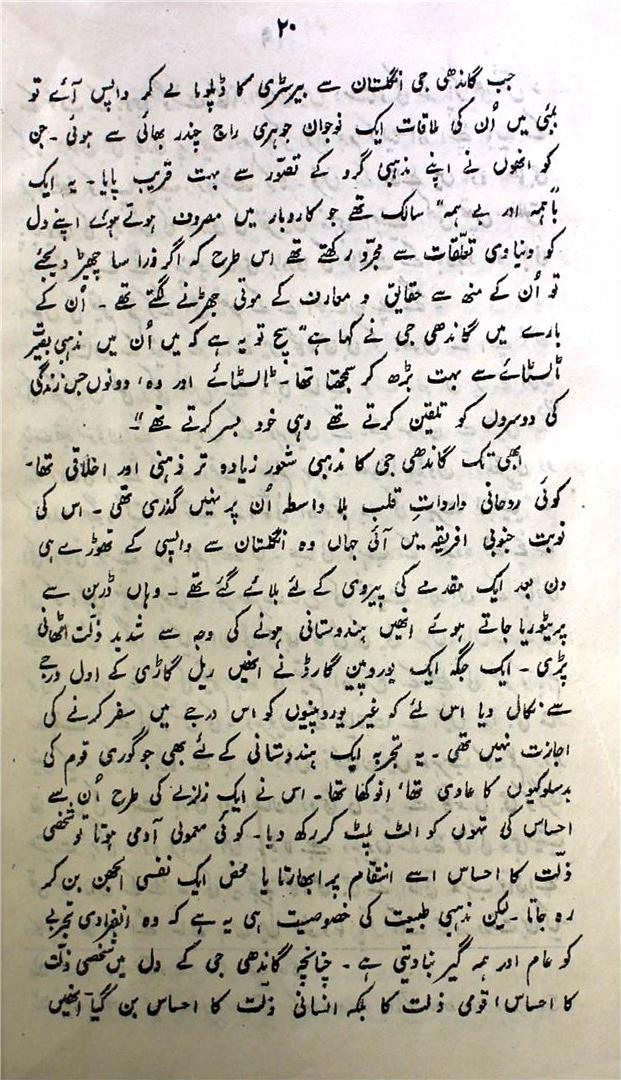 ۲۰
جب گاندھی جی انگلستان سے بیرسٹری کا ڈپلوما لے کر واپس آئے تو
بمبئی میں اُن کی ملاقات ایک نوجوان جوہری راج چندر بھائی سے ہوئی ۔ جن
کو انھوں نے اپنے مذہبی گرو کے تصوّر سے بہت قریب پایا ۔ یہ ایک
"باہمہ اور بے ہمہ" سالک تھے جو کاروبار میں مصروف ہوتے ہوئے اپنے دل
کو دنیاوی تعلّقات سے مجرّد رکھتے تھے اس طرح کہ اگر ذرا سا چھیڑ دیجئے
تو اُن کے منھ سے حقایق و معارف کے موتی جھڑنے لگتے تھے ۔ اُن کے
بارے میں گاندھی جی نے کہا ہے "سچ تو یہ ہے کہ میں اُن میں مذہبی بصیرت
ٹالسٹائے سے بہت بڑھ کر سمجھتا تھا ۔ ٹالسٹائے اور وہ، دونوں جس زندگی
کی دوسروں کو تلقین کرتے تھے وہی خود بسر کرتے تھے"۔
ابھی تک گاندھی جی کا مذہبی شعور زیادہ تر ذہنی اور اخلاقی تھا ۔
کوئی روحانی وارداتِ قلب بلا واسطہ اُن پر نہیں گذری تھی ۔ اس کی
نوبت جنوبی افریقہ میں آئی جہاں وہ انگلستان سے واپسی کے تھوڑے ہی
دن بعد ایک مقدمے کی پیروی کے لئے بلائے گئے تھے ۔ وہاں ڈربن سے
پریٹوریا جاتے ہوئے انھیں ہندوستانی ہونے کی وجہ سے شدید ذلّت اٹھانی
پڑی ۔ ایک جگہ ایک یوروپین گارڈ نے انھیں ریل گاڑی کے اول درجے
سے نکال دیا اس لئے کہ غیر یوروپینوں کو اس درجے میں سفر کرنے کی
اجازت نہیں تھی ۔ یہ تجربہ ایک ہندوستانی کے لئے بھی جو گوری قوم کی
بدسلوکیوں کا عادی تھا، انوکھا تھا ۔ اس نے ایک زلزلے کی طرح اُن کے
احساس کی تہوں کو الٹ پلٹ کر رکھ دیا ۔ کوئی معمولی آدمی ہوتا تو شخصی
ذلّت کا احساس اسے انتقام پر ابھارتا یا محض ایک نفسی الجھن بن کر
رہ جاتا ۔ لیکن مذہبی طبیعت کی خصوصیت ہی یہ ہے کہ وہ انفرادی تجربے
کو عام اور ہمہ گیر بنا دیتی ہے ۔ چنانچہ گاندھی جی کے دل میں شخصی ذلّت
کا احساس، قومی ذلت کا بلکہ انسانی ذلّت کا احساس بن گیا ۔ انھیں